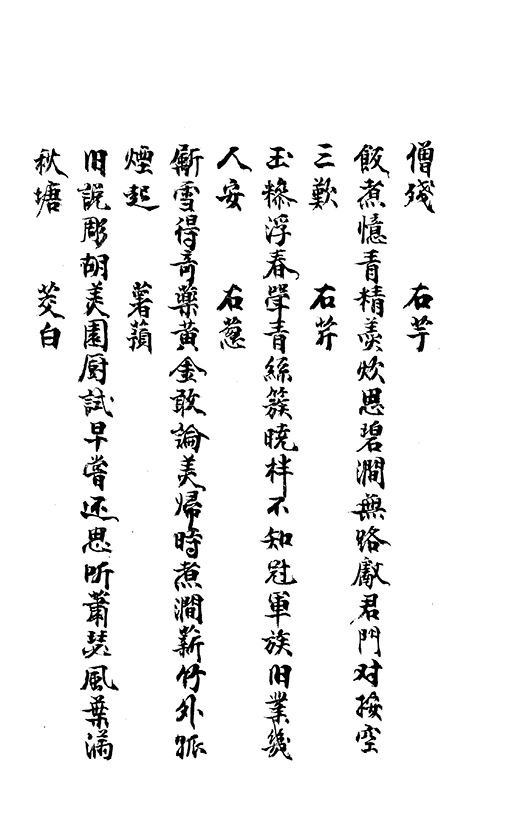 僧殘 右芋
飯煮憶青精羹炊思碧澗無路獻君門对按空
三歎 右芹
玉糝浮春 青絲簇曉柈不知冠軍族旧業幾
人安 右葱
斸雪得奇藥黄金敢論美歸時煮澗薪竹外孤
煙起 薯蕷
旧說彫胡美園厨試早嘗还思听蕭瑟風葉滿
秋塘 茭白